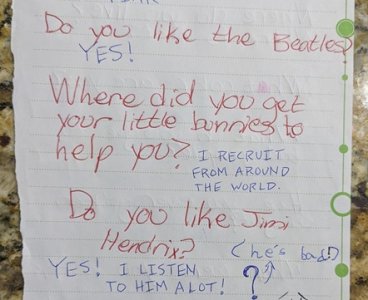 Do you like the Beatles?
YES!
Where did you get
your little bunnies to
help you?
I RECRUIT
FROM AROUND
THE WORLD.
Do you like Jimi
Hendrix?
(he's bad!?)
YES! I LISTEN
TO HIM A LOT!
?